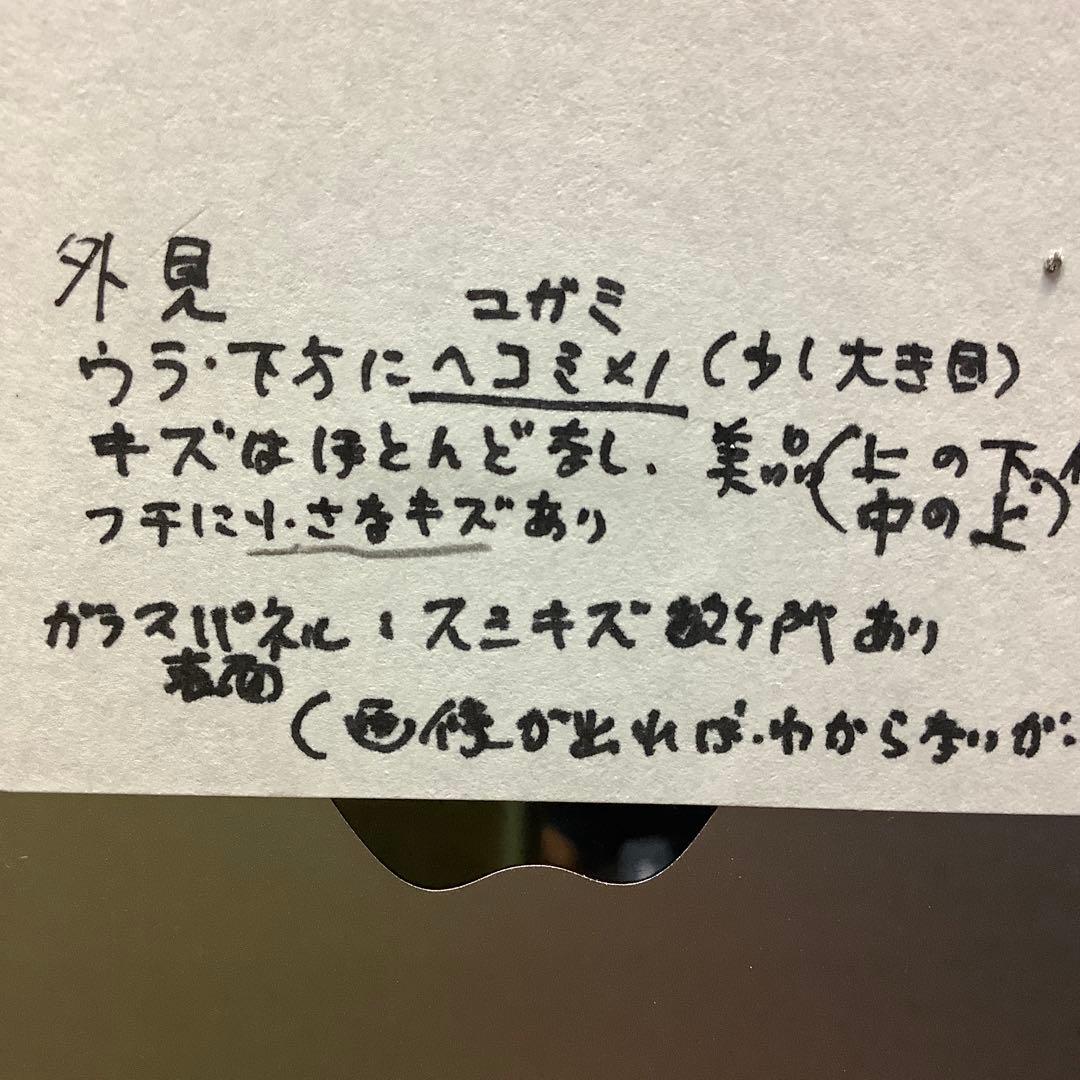 外見
ユガミ
ウラ・下方にヘコミ×1 (少し大き目)
キズはほとんどなし、美品(上の下、
中の上)
フチに小さなキズあり
ガラスパネル:スミキズ数ヶ所あり
表面
(画像が出ればわからないが: